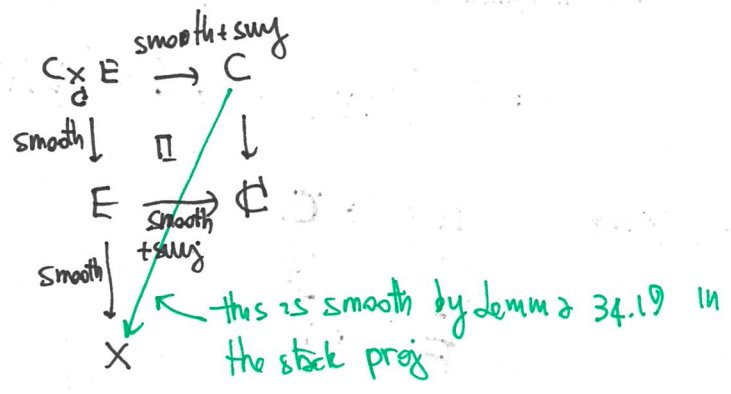 smooth + surj
C × E → C
C
smooth ↓ □ ↓
E → ℂ
smooth
+ surj
smooth ↓
X
this is smooth by Lemma 34.19 in
the stack proj